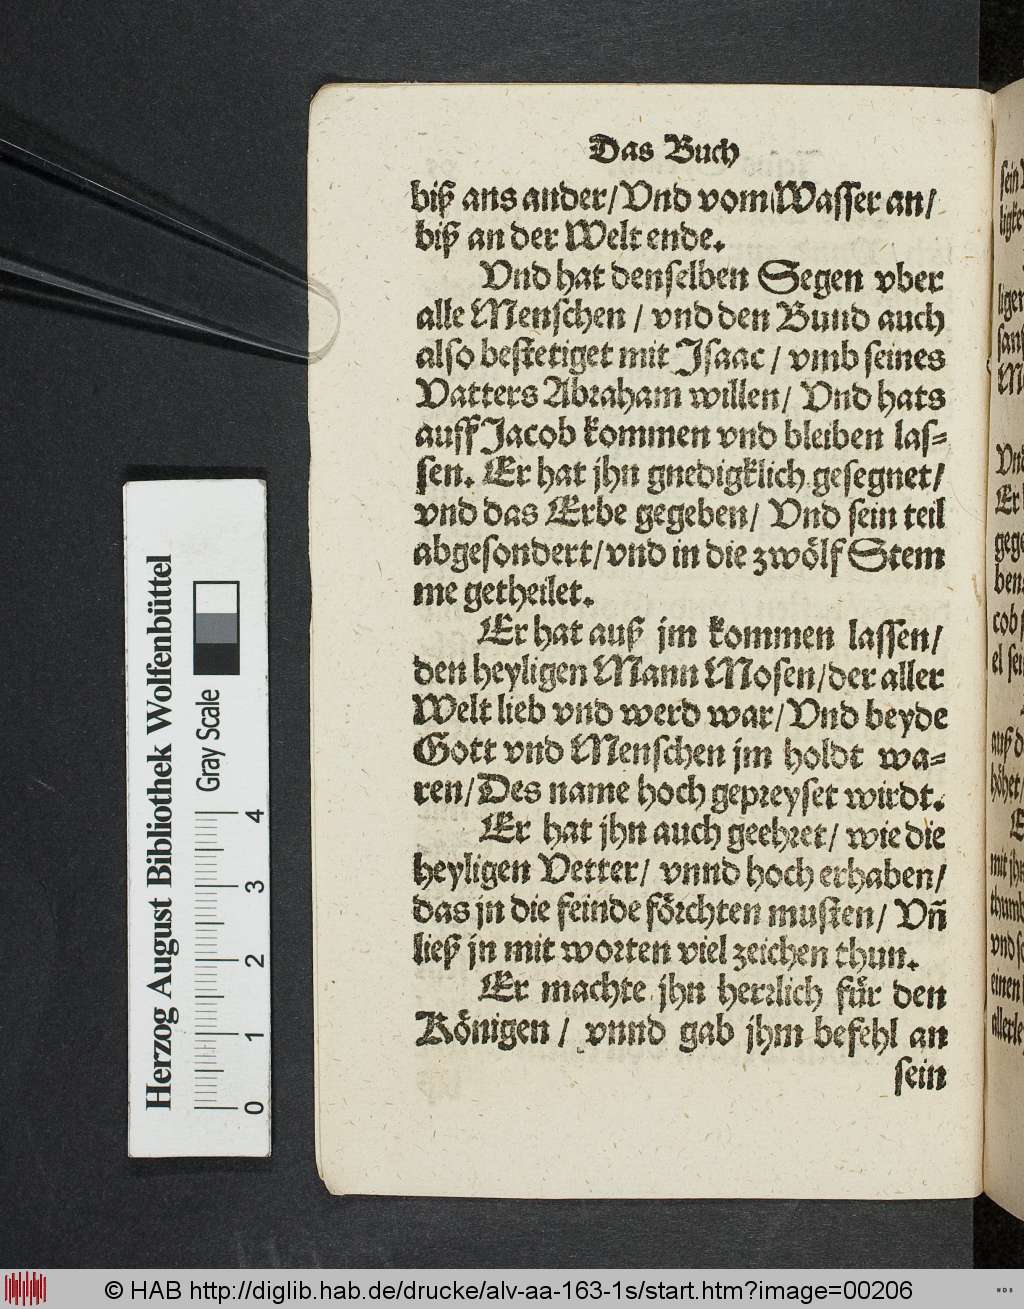 Das Buch
biß ans ander/ Vnd vom Wasser an/
biß an der Welt ende.
Vnd hat denselben Segen vber
alle Menschen / vnd den Bund auch
also bestetiget mit Isaac / vmb seines
Vatters Abraham willen/ Vnd hats
auff Jacob kommen vnd bleiben las-
sen. Er hat jhn gnedigklich gesegnet/
vnd das Erbe gegeben/ Vnd sein teil
abgesondert/ vnd in die zwölf Stem
me getheilet.
Er hat auß jm kommen lassen/
den heyligen Mann Mosen/ der aller
Welt lieb vnd werd war/ Vnd beyde
Gott vnd Menschen jm holdt wa-
ren/ Des name hoch gepreyset wirdt.
Er hat jhn auch geehret/ wie die
heyligen Vetter/ vnnd hoch erhaben/
das jn die feinde förchten musten/ Vñ
ließ jn mit worten viel zeichen thun.
Er machte jhn herrlich für den
Königen / vnnd gab jhm befehl an
sein
Herzog August Bibliothek Wolfenbüttel
Gray Scale
0 1 2 3 4
© HAB http://diglib.hab.de/drucke/alv-aa-163-1s/start.htm?image=00206